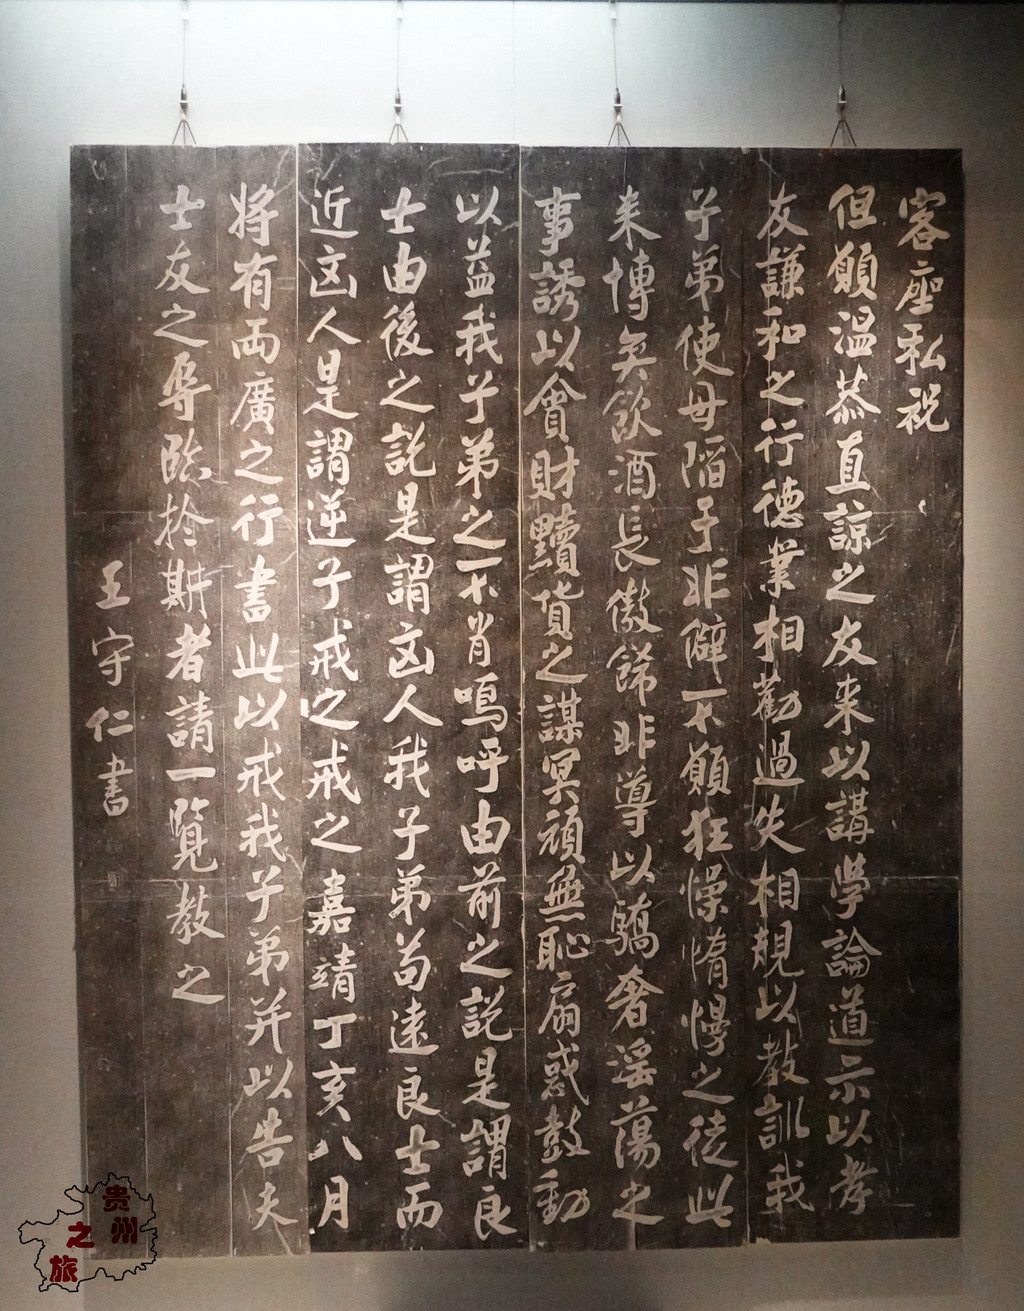 客座私祝
但願温恭直諒之友来以講學論道示以孝
友謙和之行德業相勸過失相規以教訓我
子弟使毋陷于非僻不願狂懆惰慢之徒此
来博奕飲酒長傲飾非導以驕奢淫蕩之
事誘以貪財黷貨之謀冥頑無恥扇惑鼓動
以益我子弟之不肖嗚呼由前之説是謂良
士由後之説是謂凶人我子弟苟遠良士而
近凶人是謂逆子戒之戒之嘉靖丁亥八月
将有兩廣之行書此以戒我子弟并以告夫
士友之辱臨於斯者請一覽教之
王守仁書
贵州
之
旅